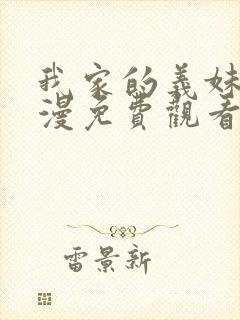 我家的義妹
漫免費觀看
雷景新